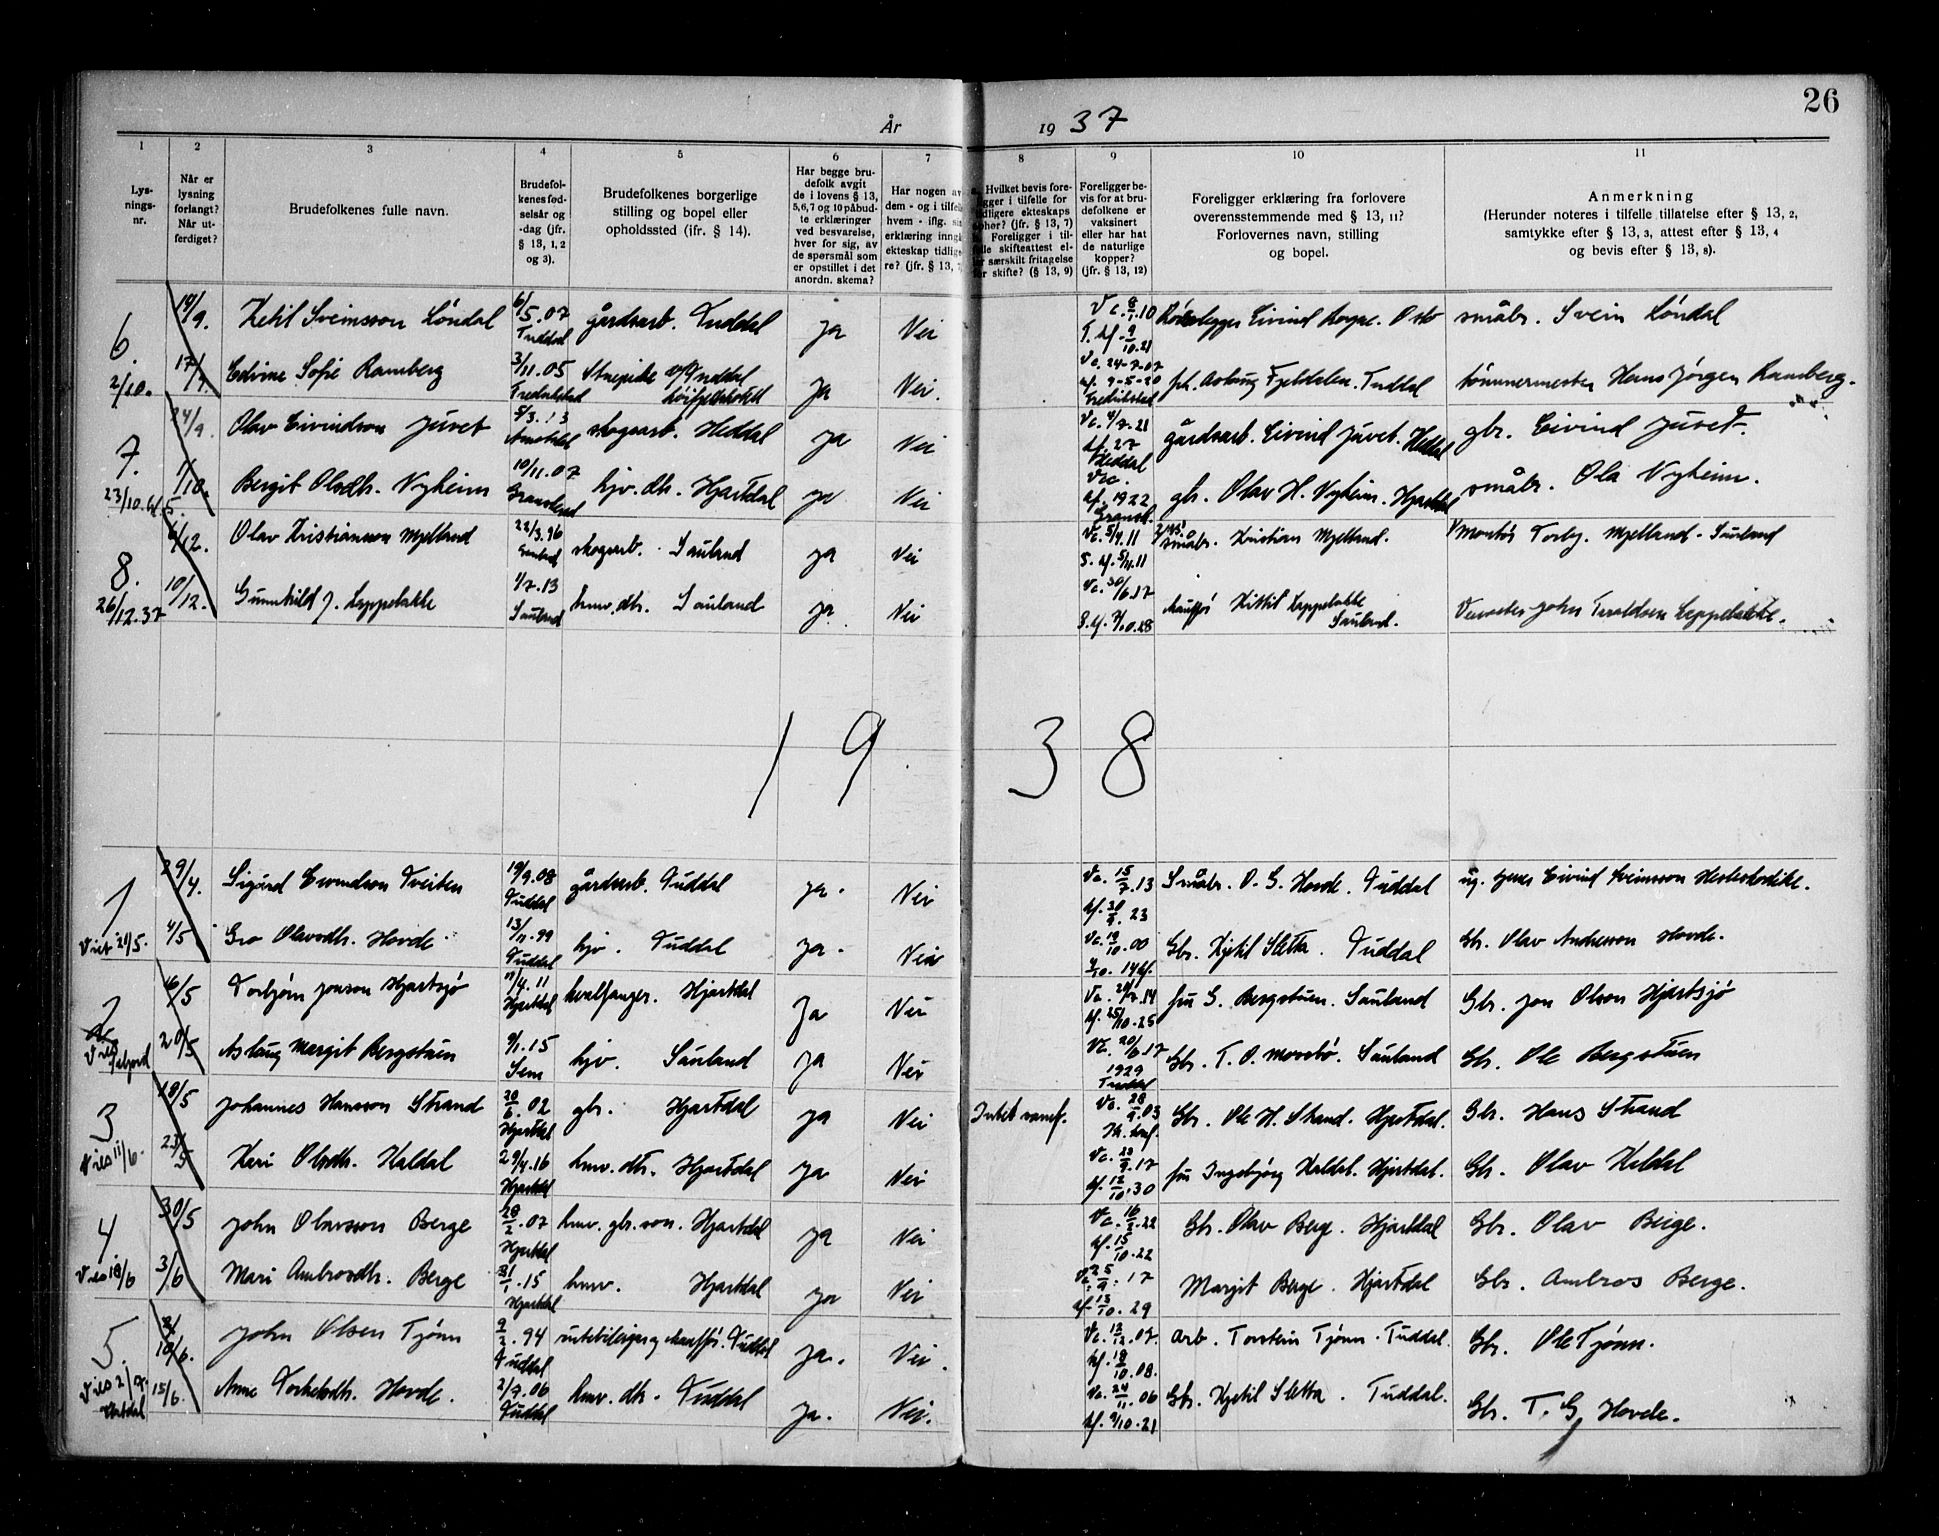 26
År 1937
1 2 3 4 5 6 7 8 9 10 11
Lys-
nings-
nr.
Når er
lysning
forlangt?
Når ut-
ferdiget?
Brudefolkenes fulle navn.
Brudefol-
kenes fød-
selsår og
-dag (jfr.
§ 13, 1, 2
og 3).
Brudefolkenes borgerlige
stilling og bopel eller
opholdssted (ifr. § 14).
Har begge bru-
defolk avgit
de i lovens § 13,
5,6,7 og 10 påbud-
te erklæringer
ved besvarelse,
hver for sig, av
de spørsmål som
er opstillet i det
anordn. skema?
Har nogen av
dem - og i tilfelle
hvem - iflg. sin
erklæring inngå
ekteskap tidlige-
re? (jfr. § 13, 7
Hvilket bevis fore-
gger i tilfelle for
dligere ekteskaps
phør? (jfr. § 13, 7)
Foreligger i til-
lle skifteattest el-
r særskilt fritagelse
r skifte? (§ 13, 9)
Foreligger be-
vis for at bru-
defolkene er
vaksinert
eller har hat
de naturlige
kopper?
(jfr. § 13, 12)
Foreligger erklæring fra forlovere
overensstemmende med § 13, 11?
Forlovernes navn, stilling
og bopel.
Anmerkning
(Herunder noteres i tilfelle tillatelse efter § 13, 2,
samtykke efter § 13, 3, attest efter § 13, 4
og bevis efter § 13, 8).
6. 2/10. 14/9. Ketil Sveinsson Løndal 6/5.07 Tuddal gårdsarb. Tuddal ja Nei Vc. 8/7.10 T. kf. 9/10.21 Eivind småbr. Svein Løndal
17/9. Edvine Sofie Ramberg 3/11.05 Fredrikstad Tuddal høifjellshotell ja Nei. Vc. 24-7-07 kf. 9-5-20 Fredrikstad frk. Aslaug Fjeldalen. Tuddal tømmermester Hans Jørgen Ramberg.
7. 23/10. 24/9. Olav Eivindson Juvet skogsarb. Heddal ja Nei Vc. 4/7.21 kf. 27 Heddal gårdsarb. Eivind Juvet. Heddal gbr. Eivind Juvet.
1/10. Bergit Olavdtr. Nyheim 10/11.07 Gransherad hjv. dtr. Hjartdal ja Nei Vac. kf. 1922 Gransh. gbr. Olav H. Nyheim. Hjartdal småbr. Ola Nyheim.
8. 26/12.37 6/12. Olav Kristianson Mjelland 22/3.96 Sauland skogsarb. Sauland ja Nei Vc. 5/9.11 S. kf. 5/11.11 småbr. Kristian Mjelland. Torbj. Mjelland - Sauland
10/12. Gunnhild J. Leppelakke 4/7.13 Sauland hmv. dtr. Sauland ja. Nei Vc. 30/6.17 S. kf. 7/10.28 Kittil Leppelakke Sauland. John Taraldsen Leppelakke.
1938
1 Viet 21/5. 29/4. Sigurd Eivindson Tveiten 19/9.08 Tuddal gårdsarb. Tuddal ja. Nei Vc. 15/7.13 kf. 30/9.23 Småbr. O. G. Hovde. Tuddal Eivind Sveinsson
4/5 Gro Olavsdtr. Hovde 13/11.99 Tuddal hjv. Tuddal ja. Nei Vc. 19/10.00 Gbr. Kjetil Sletta. Tuddal Gbr. Olav Andresson Hovde.
2 Vies 16/5 Torbjørn Jonson Hjartsjø 17/4.11 Hjartdal hvalfanger. Hjartdal Ja Nei Vc. 20/7.14 kf. 25/10.25 fru G. Bergstuen. Sauland Gbr. Jon Olson Hjartsjø
20/5 Aslaug Margit Bergstuen 9/1.15 Sem hjv Sauland ja Nei Vc. 20/6.17 1929 Tuddal Gbr. T. O. Mossbø. Sauland Gbr. Ole Bergstuen
3 Vies 11/6. 18/5 Johannes Hansson Strand 20/6.02 Hjartdal gbr. Hjartdal ja Nei Intet Vc. 28/9.03 Gbr. Ole H. Strand. Hjartdal. Gbr. Hans Strand
23/5 Kari Olavdtr. Kaldal 29/4.16 Hjartdal hmv. dtr. Hjartdal ja Nei Vc. 23/9.17 kf. 12/10.30 fru Ingebjørg Kaldal. Hjartdal. Gbr. Olav Kaldal
4 Vies 18/6 30/5 John Olavsson Berge 28/2.07 Hjartdal hmv. gbr. son. Hjartdal ja Nei Vc. 16/5.22 kf. 15/10.22 Gbr. Olav Berge. Hjartdal Gbr. Olav Berge.
3/6 Mari Ambrosdtr. Berge 31/1.15 Hjartdal hmv. Hjartdal ja Nei Vc. 25/9.17 kf. 13/10.29 Margit Berge. Hjartdal Gbr. Ambros Berge.
5. Vies 2/7. 10/6. John Olsen Tjønn 9/3.94 Tuddal rutebileier og chauffør. Tuddal ja. Nei. Vc. 12/12.07. kf. 18/10.08. arb. Torstein Tjønn. Tuddal. Gbr. Ole Tjønn.
15/6. Anne Torkelsdtr. Hovde. 2/7.06 Tuddal hmv. dtr. Tuddal ja. Nei. Vc. 24/11.06 kf. 9/10.21 Gbr. Kjetil Sletta. Tuddal. Gbr. T. G. Hovde.